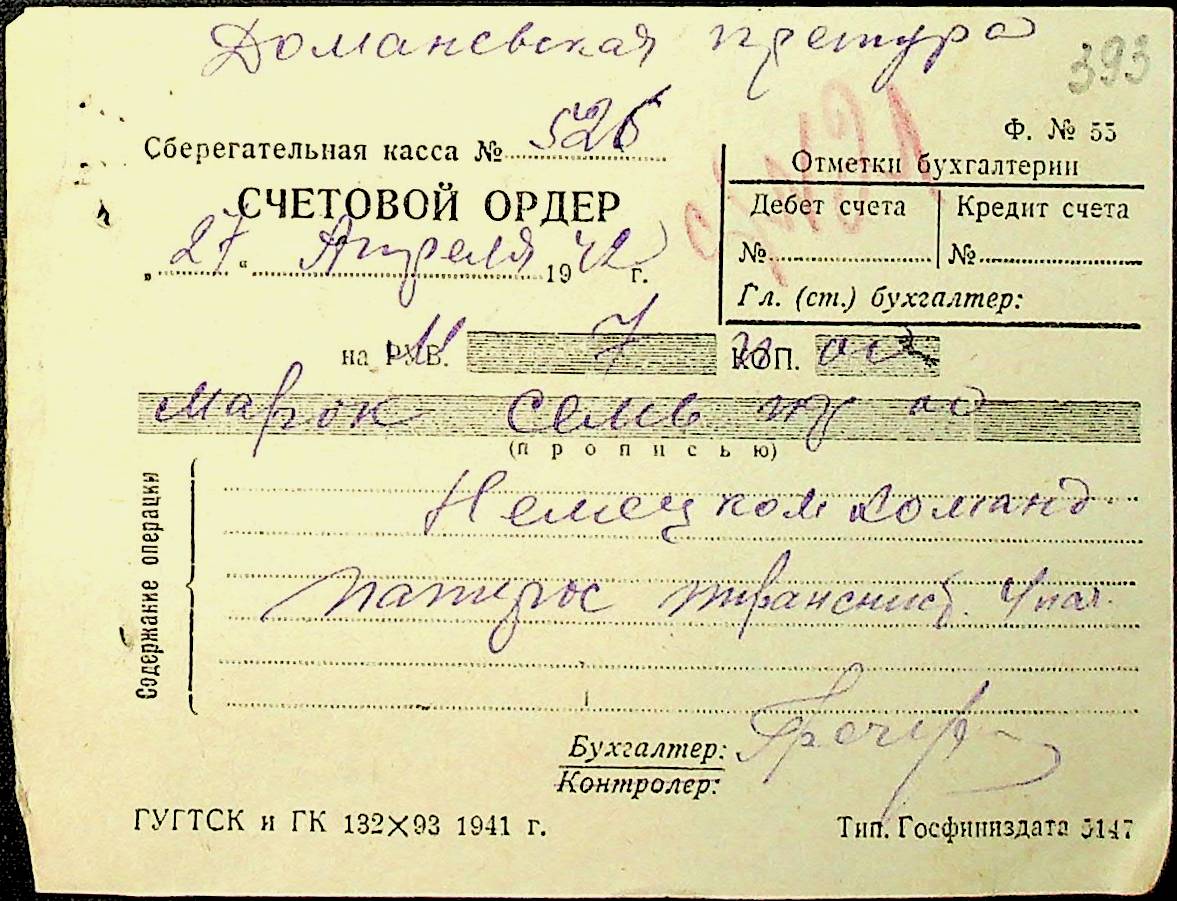 Доманевская претура
393
Ф. № 55
Сберегательная касса № 526
СЧЕТОВОЙ ОРДЕР
„27“ Апреля 1942 г.
Отметки бухгалтерии
Дебет счета Кредит счета
№ №
Гл. (ст.) бухгалтер:
на РУБ. 7 КОП. 00
марок семь 00
(прописью)
Содержание операции
Немецком команд
папирос
Бухгалтер:
Контролер:
ГУГТСК и ГК 132×93 1941 г.
Тип. Госфиниздата 5147